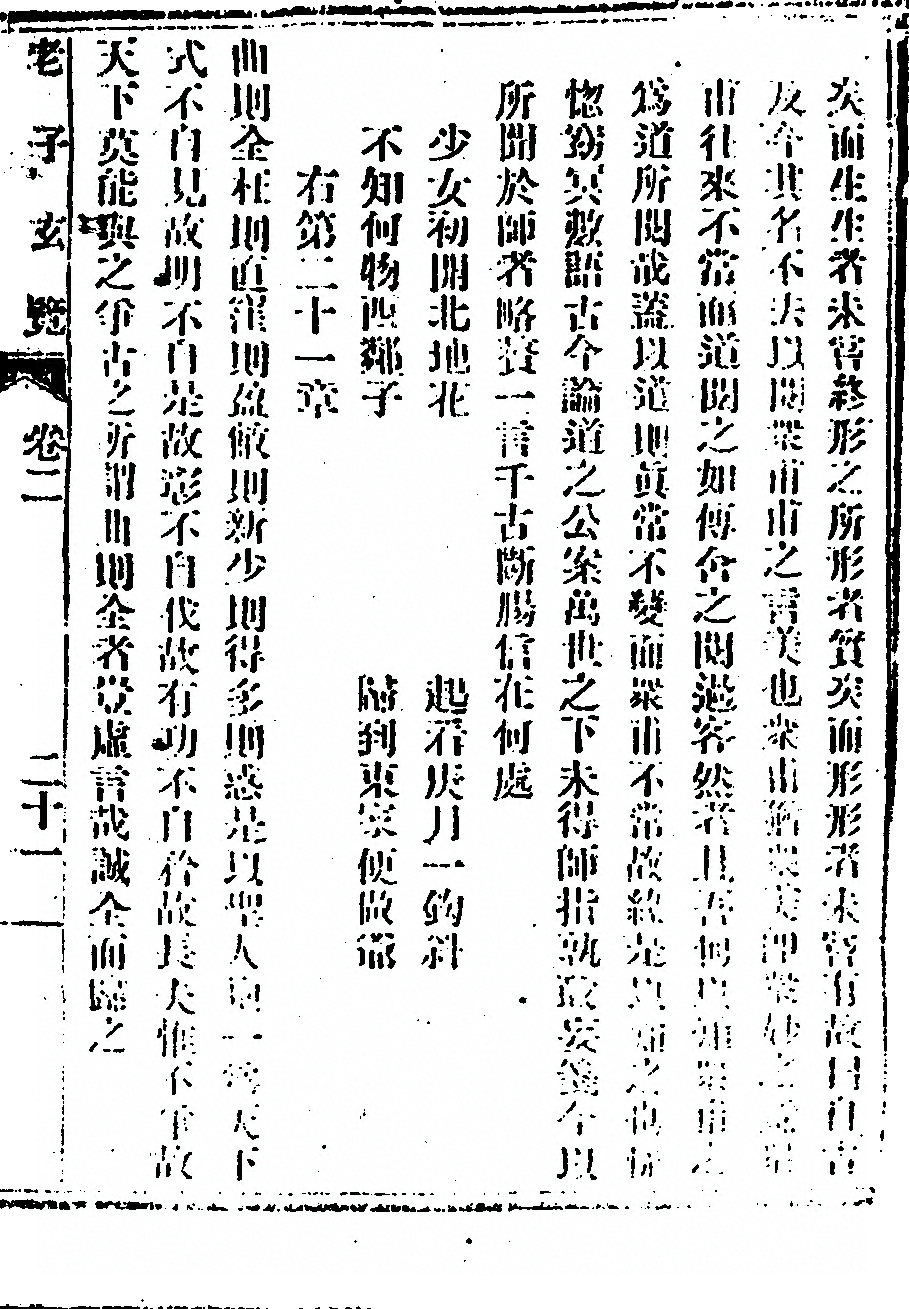 矣而生生者未嘗終形之所形者實矣而形形者未嘗有故曰自古
及今其名不去以閱衆甫甫之言美也衆甫猶衆美即衆妙
甫往來不常而道閱之如傳舍之閱過客然者且吾何以知衆甫之
爲道所閱哉蓋以道則眞常不變而衆甫不常故終是以知之也恍
惚窈冥數語古今論道之公案萬世之下未得師指孰敢妄箋今以
所聞於師者略贅一言千古斷腸信在何處
少女初開北地花 起看庚月一鈎斜
不知何物西鄰子 歸到東家便做爺
右第二十一章
曲則全枉則直窪則盈敝則新少則得多則惑是以聖人抱一爲天下
式不自見故明不自是故彰不自伐故有功不自矜故長夫惟不爭故
天下莫能與之爭古之所謂曲則全者豈虛言哉誠全而歸之
老子玄覽 卷二 二十一